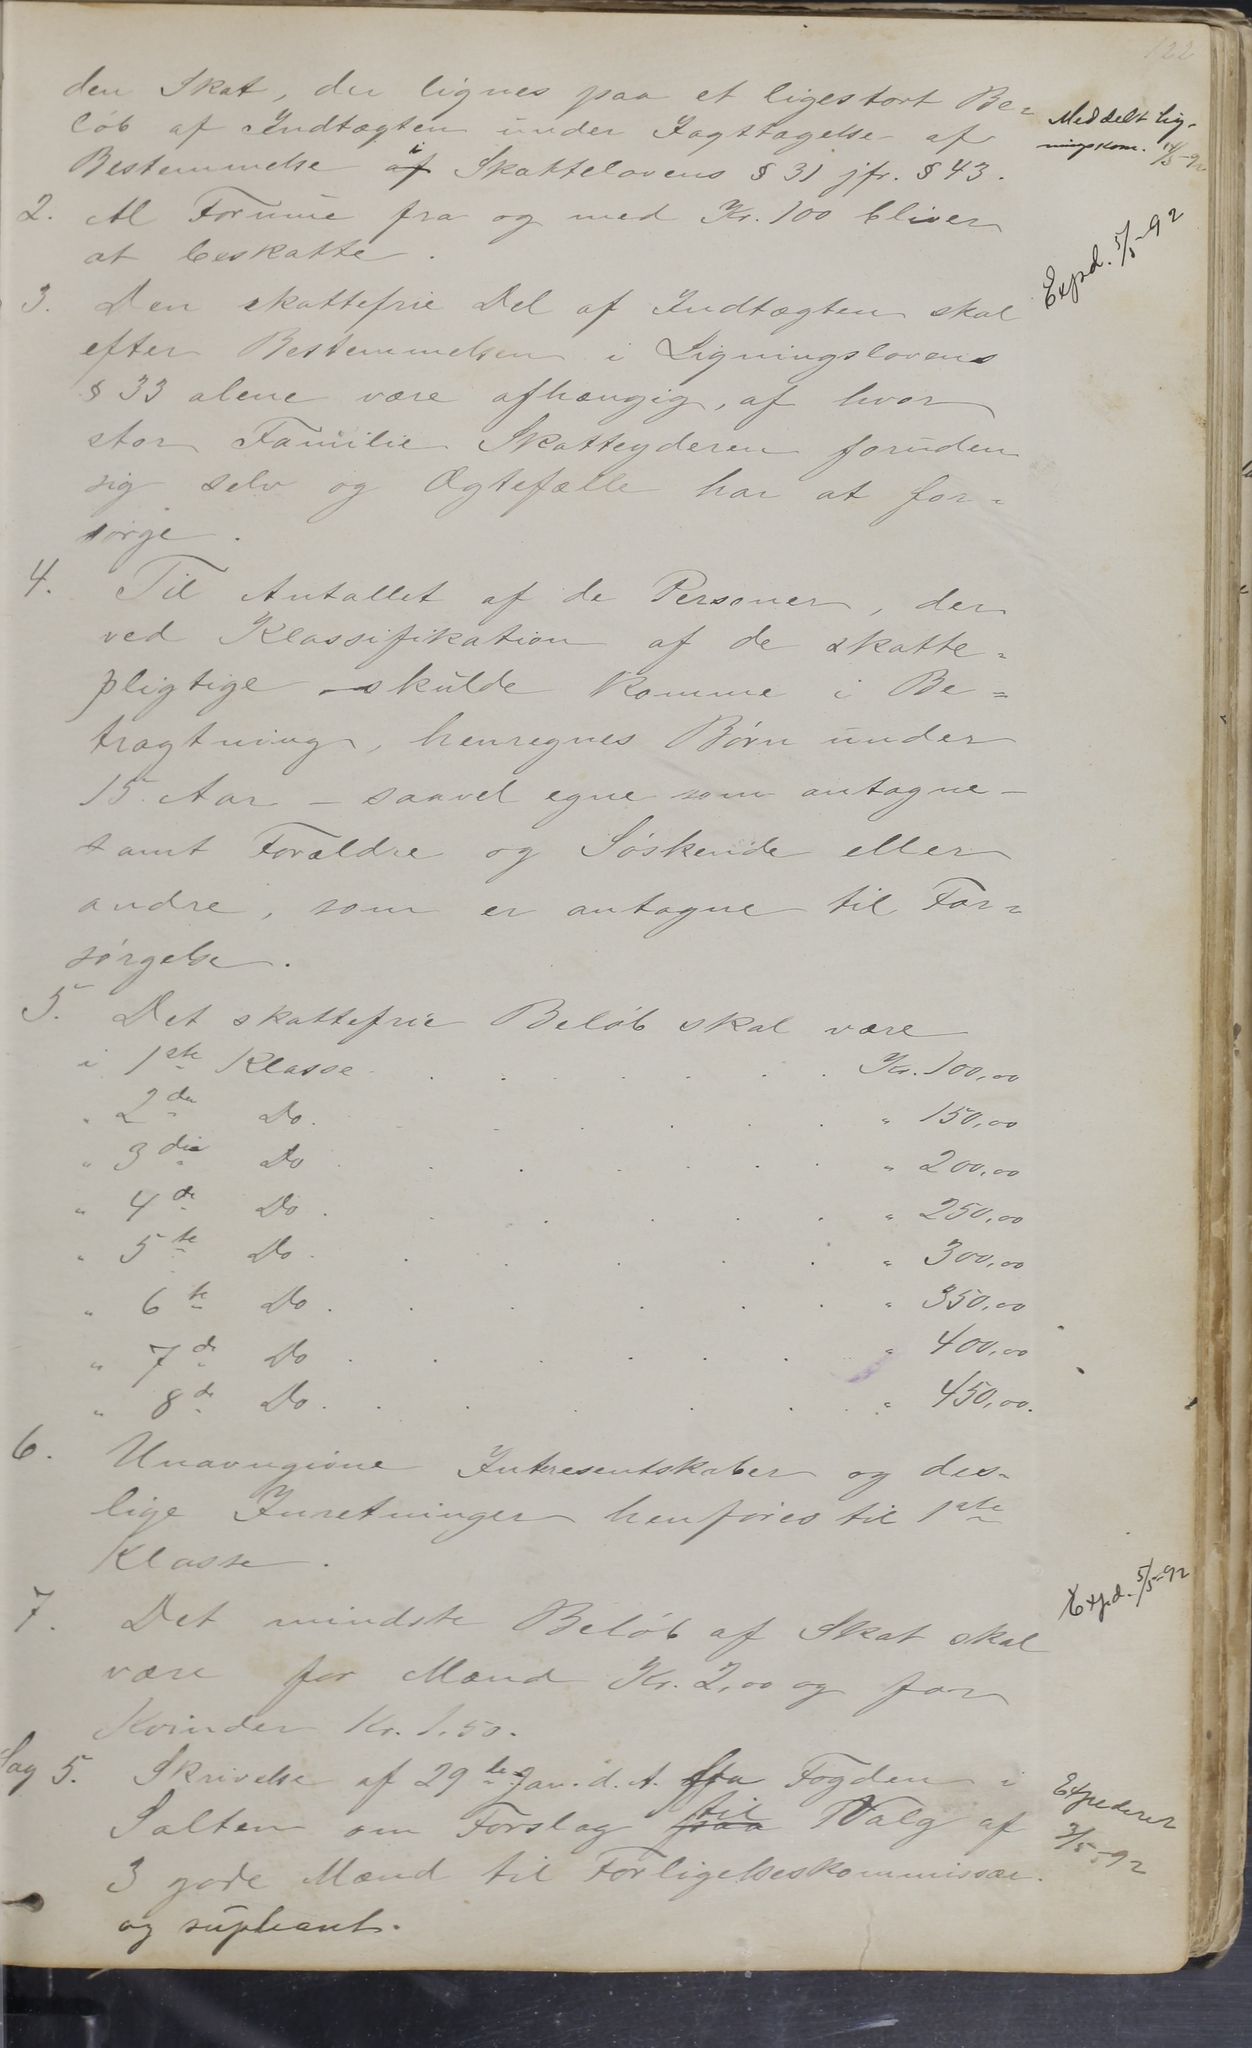 122
den Skat, der lignes paa et ligestort Be-
løb af Indtægten under Iagttagelse af
Bestemmelse af i Skattelovens § 31 jfr. § 43.
Meddelt Lig-
ningskom. 14/5-92
2. Al Formue fra og med Kr. 100 bliver
at beskatte.
Expd. 5/5-92
3. Den skattefrie Del af Indtægten skal
efter Bestemmelsen i Ligningslovens
§ 33 alene være afhængig, af hvor
stor Familie Skatteyderen foruden
sig selv og Ægtefælle har at for-
sørge.
4. Til Antallet af de Personer, der
ved Klassifikation af de skatte-
pligtige skulde komme i Be-
tragtning, henregnes Børn under
15 Aar - saavel egne som antagne -
samt Forældre og Søskende eller
andre, som er antagne til For-
sørgelse.
5. Det skattefrie Beløb skal være
i 1ste Klasse . . . . . . Kr. 100,00
" 2den Do. . . . . . " 150,00
" 3die Do . . . . . . " 200,00
" 4de Do . . . . . . " 250,00
" 5te Do . . . . . " 300,00
" 6te Do . . . . . . " 350,00
" 7de Do . . . . . " 400,00
" 8de Do . . . . . . " 450,00.
6. Unavngivne Interesentskaber og des-
lige Inretninger henføres til 1ste
Klasse.
7. Det mindste Beløb af Skat skal
være for Mænd Kr. 2,00 og for
Kvinder Kr. 1.50.
Expd. 5/5-92
Sag 5. Skrivelse af 29de Jan. d. A. fra Fogden i
Salten om Forslag paa til Valg af
3 gode Mænd til Forligelseskommissær
og supleant.
Expederet
3/5-92